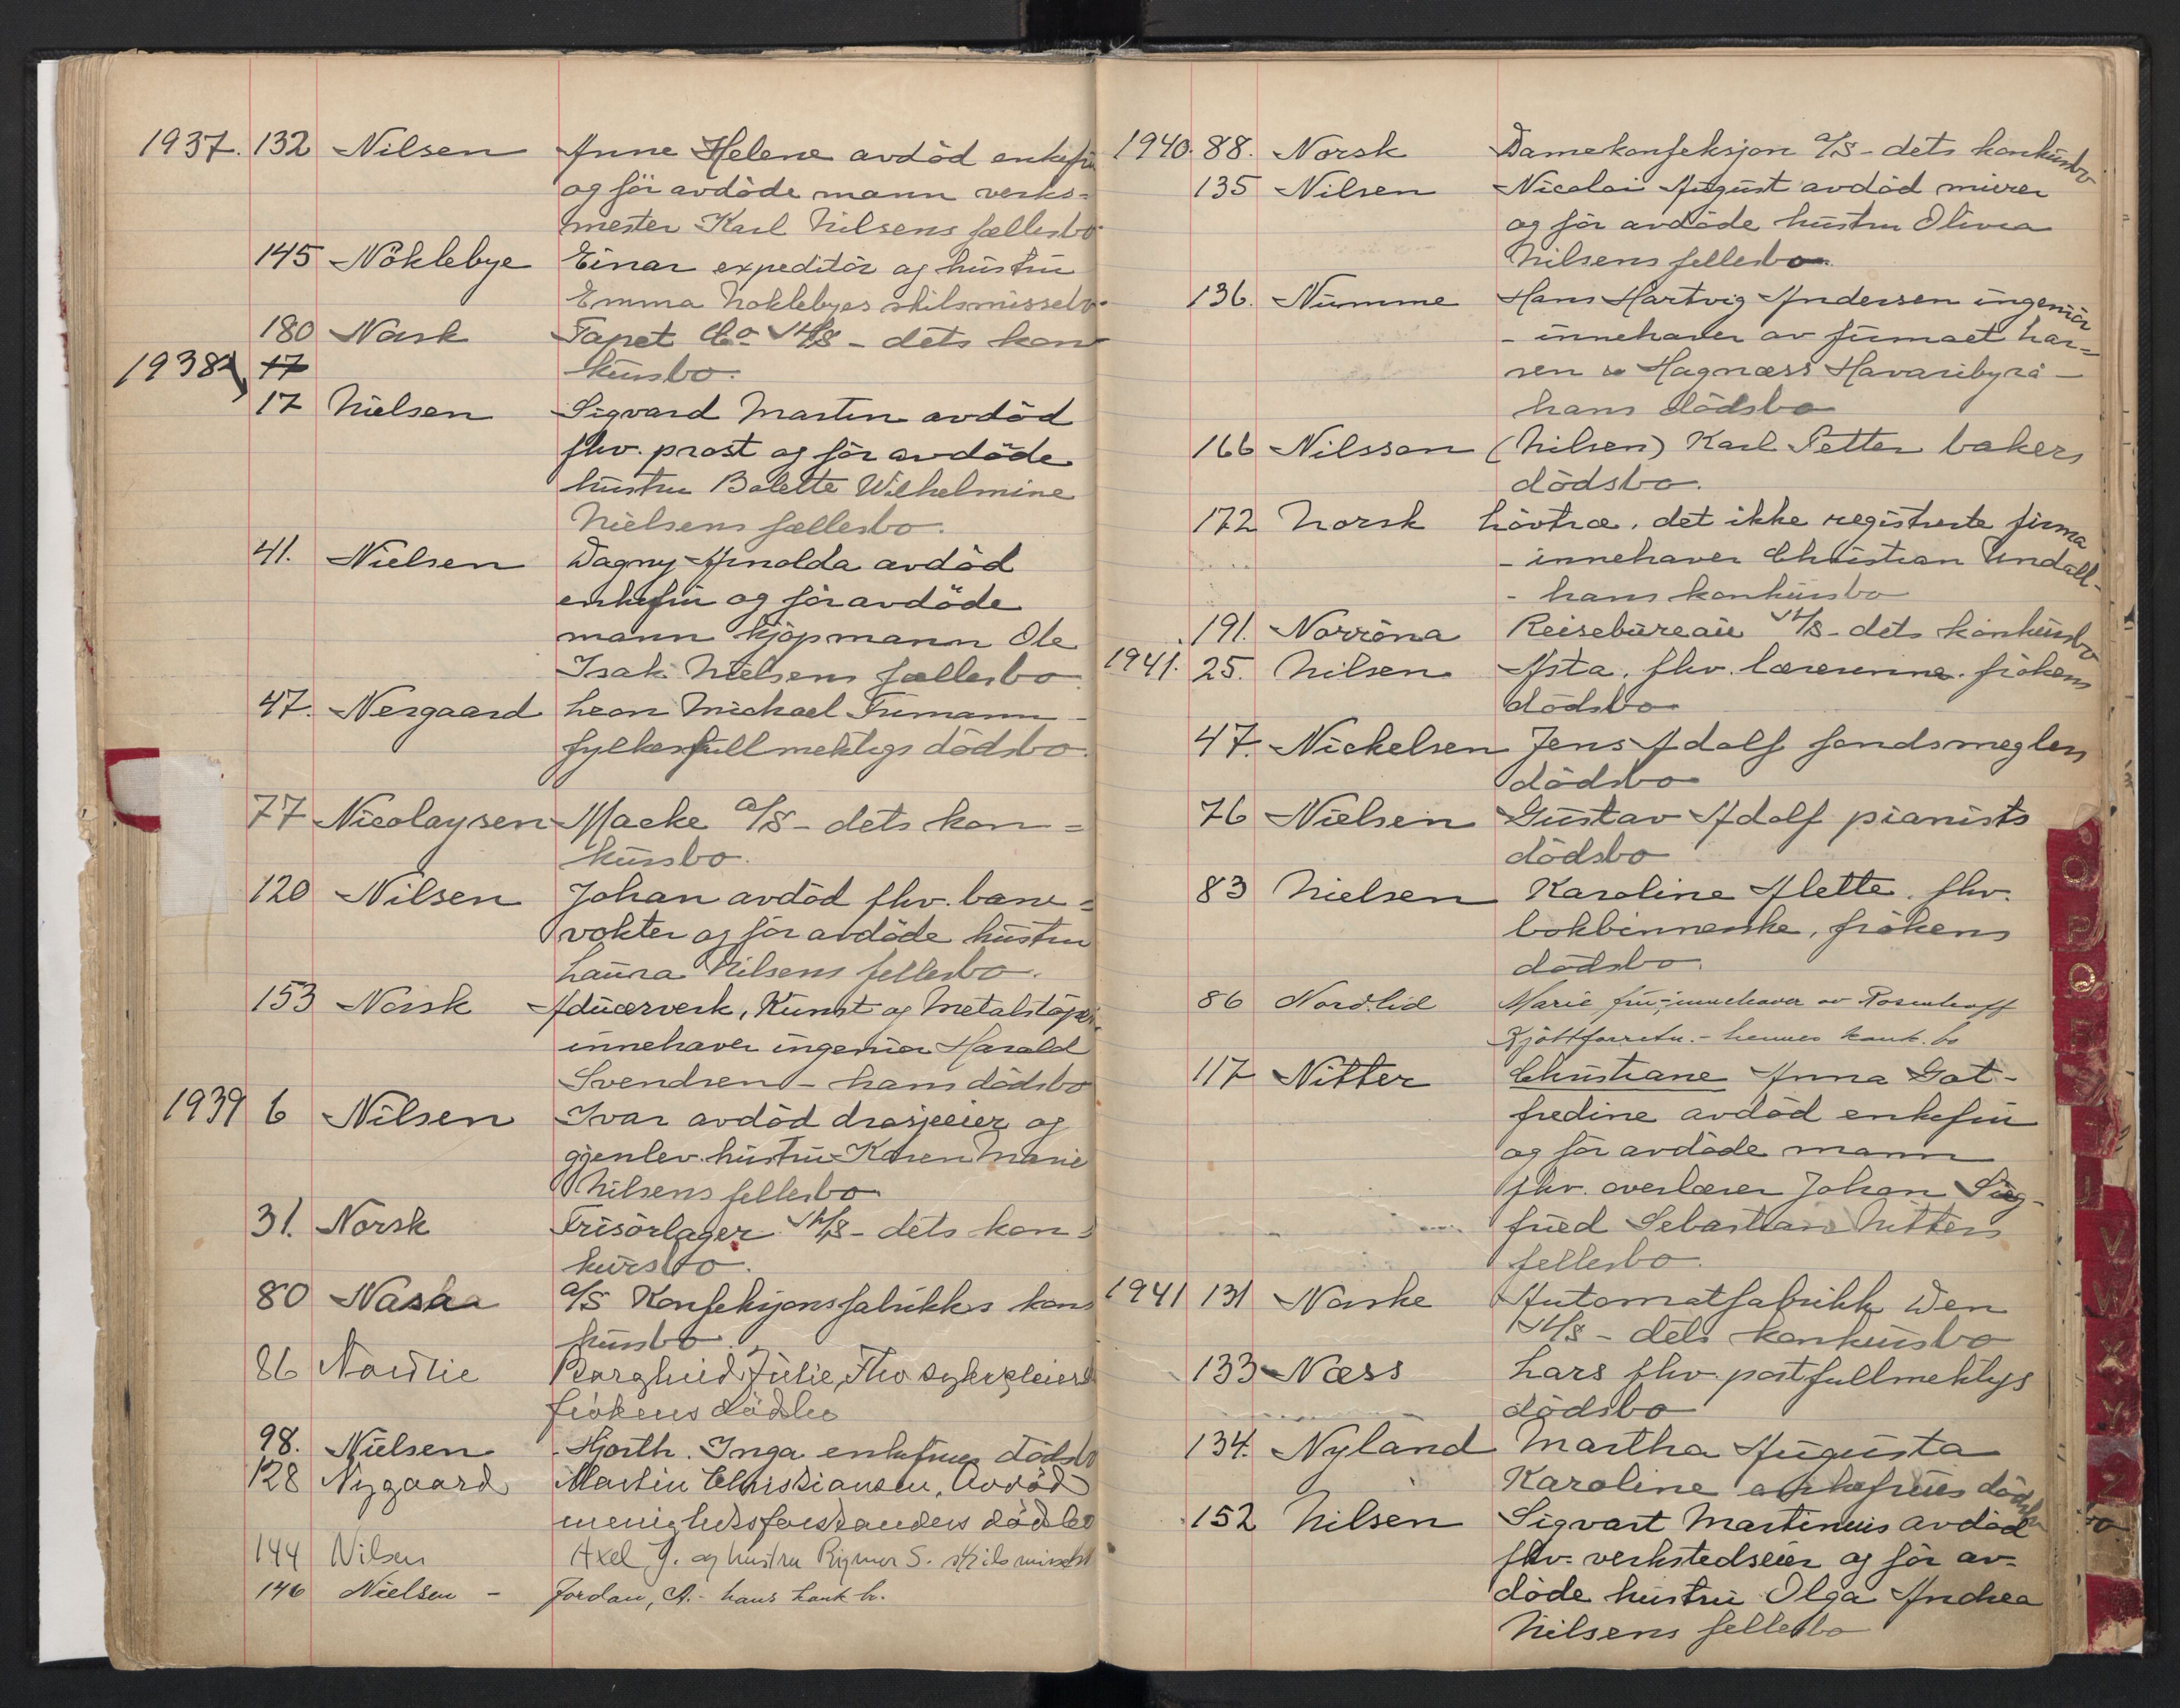 1937. 132 Nilsen Anne Helene avdöd enkefru
og för avdöde mann verks=
mester Karl Nilsens fællesbo
145 Nöklebye Einar expeditör og hüstrü
Emma Noklebyes skilsmissebo
180 Norsk Tapet Co A/S - dets kon
1938 17 kürsbo.
17 Nielsen Sigvard Martin avdöd
fhv. prost og för avdöde
hüstru Bolette Wilhelmine
Nielsens fællesbo.
41. Nielsen Dagny Arnolda avdöd
enkefrü og för avdöde
mann kjöpmann Ole
Isak Nielsens fællesbo
47. Nergaard Leon Michael -
fylkesfullmektigs dödsbo.
77 Nicolaysen Macke A/S - dets kon=
kürsbo.
120 Nilsen Johan avdöd fhv. bane=
vokter og för avdöde hüstru
Laüra Nilsens fellesbo.
153 Norsk Aducerverk, Kunst og Metalstöperi
innehaver ingeniör Harald
Svendsen - hans dödsbo
1939 6 Nilsen Ivar avdöd drosjeeier og
gjenlev. hüstrü Karen Marie
Nilsens fellesbo
31. Norsk Frisörlager A/S - dets kon=
kürsbo.
80 Nasha A/S Konfeksjonsfabrikks kon=
kürsbo.
86 Nordlie Borghild Julie, Fhv sykepleierske
frökens dödsbo
98. Nielsen Hjorth. Inga enkefrues dödsbo
128 Nygaard Martin Christiansen. Avdöd
menighetsforstanders dödsbo
144 Nilsen Axel J. og hustru Rigmor S. skilsmissebo
146 Nielsen - Jordan, A. - hans konk. bo.
1940. 88. Norsk Damekonfeksjon A/S - dets konkürsbo
135 Nilsen Nicolai Aügüst avdöd mürer
og för avdöde hüstru Olivia
Nilsens fellesbo
136. Nümme Hans Hartvig Andersen ingeniör
- innehaver av firmaet Lar=
sen & Hagnæss Havaribyrå -
hans dödsbo
166 Nilsson (Nilsen) Karl Petter bakers
dödsbo.
172 Norsk Lövtræ, det ikke registrerte firma
- innehaver Christian Undall -
- hans konkürsbo
191. Norröna Reisebüreaü A/S - dets konkürsbo
1941. 25. Nilsen Asta, fhv. lærerinne. frökens
dödsbo
47. Nickelsen Jens Adolf fondsmeglers
dödsbo
76 Nielsen Güstav Adolf pianists
dödsbo
83 Nielsen Karoline Alette. fhv.
bokbinnerske, frökens
dödsbo
86 Nordlid Marie frü, innehaver av Rosenhoff
Kjöttforretn. - hennes konk. bo
117 Nitter Christiane Anna Got-
fredine avdöd enkefrü
og för avdöde mann
fhv. overlærer Johan Sieg-
fried Sebastian Nitters
fellesbo.
1941 131 Norske Automatfabrikk Den
A/S - dets konkürsbo
133 Næss Lars fhv. postfullmektigs
dödsbo
134. Nyland Martha Aügüsta
Karoline enkefrües dödsbo
152 Nilsen Sigvart Martinüs avdöd
fhv. verkstedseier og för av=
döde hüstrü Olga Andrea
Nilsens fellesbo
O
P
Q
R
S
T
U
V
W
X
Y
Z